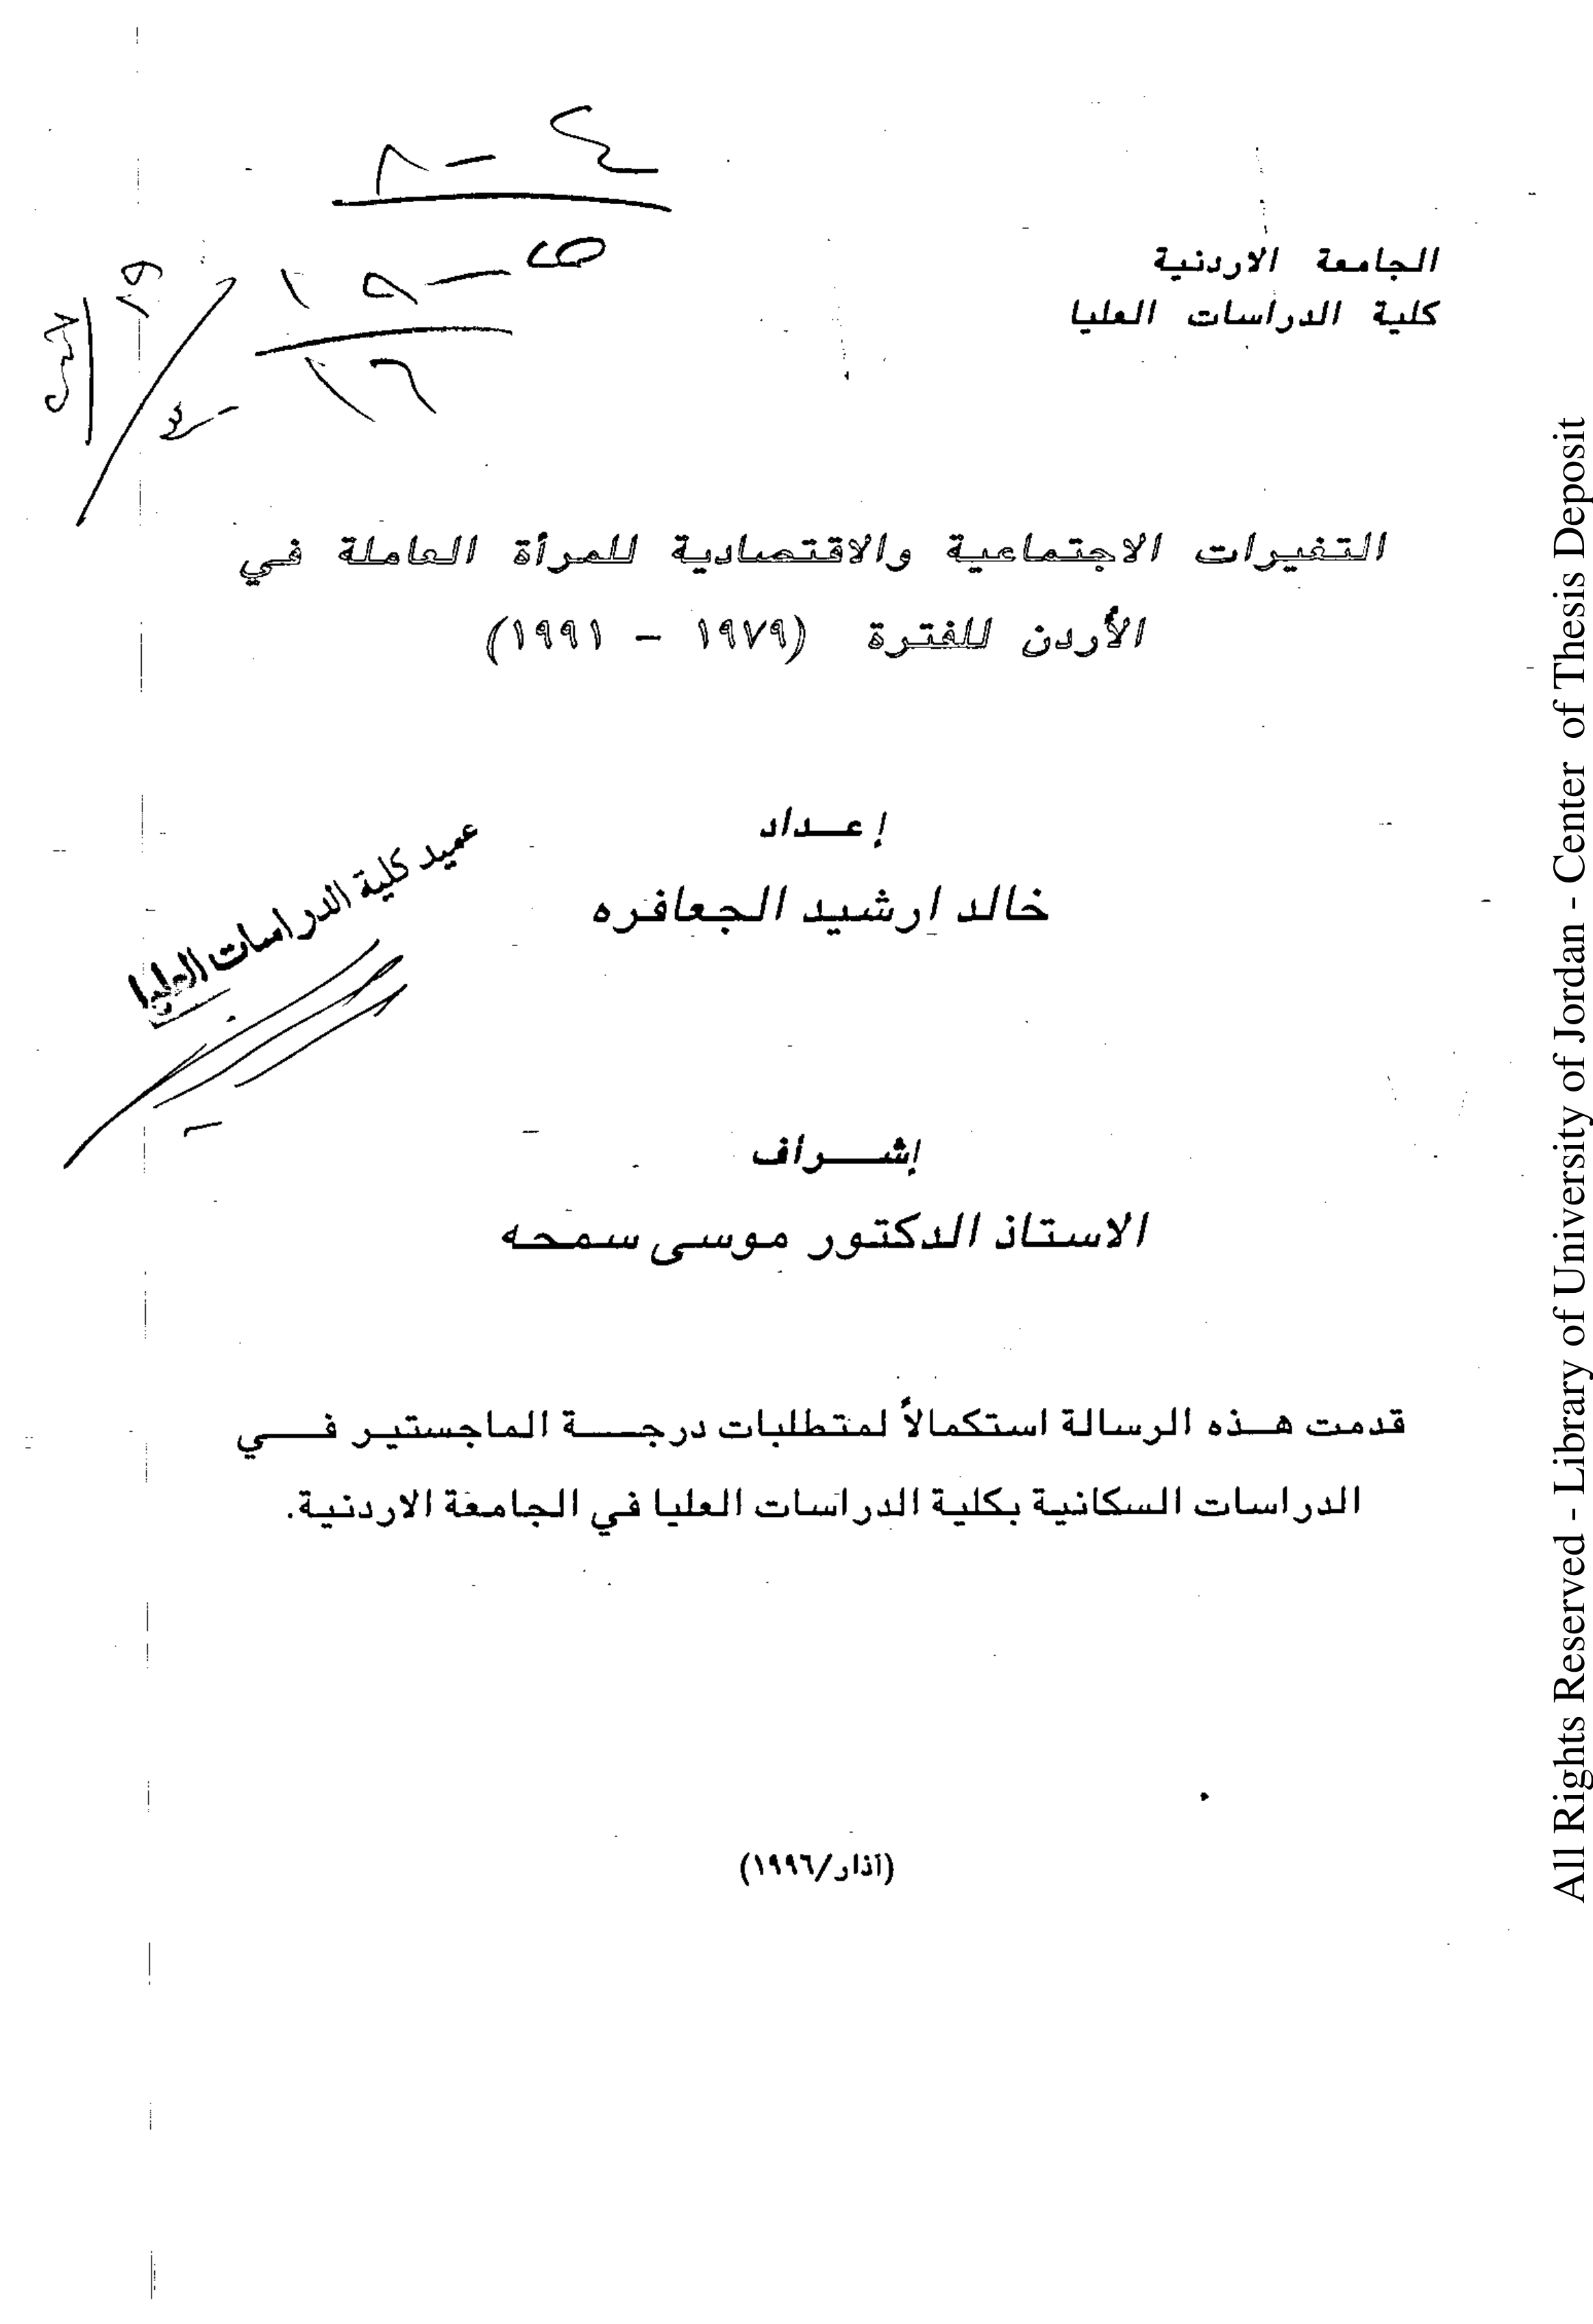 الجامعة الاردنية
كلية الدراسات العليا
التغيرات الاجتماعية والاقتصادية للمرأة العاملة في
الأردن للفترة (١٩٧٩ - ١٩٩١)
إعــداد
خالد ارشيد الجعافره
عميد كلية الدراسات العليا
إشــراف
الاستاذ الدكتور موسى سمحه
قدمت هـذه الرسالة استكمالاً لمتطلبات درجـــة الماجستيـر فـــي
الدراسات السكانية بكلية الدراسات العليا في الجامعة الاردنية.
(آذار/١٩٩٦)
All Rights Reserved - Library of University of Jordan - Center of Thesis Deposit